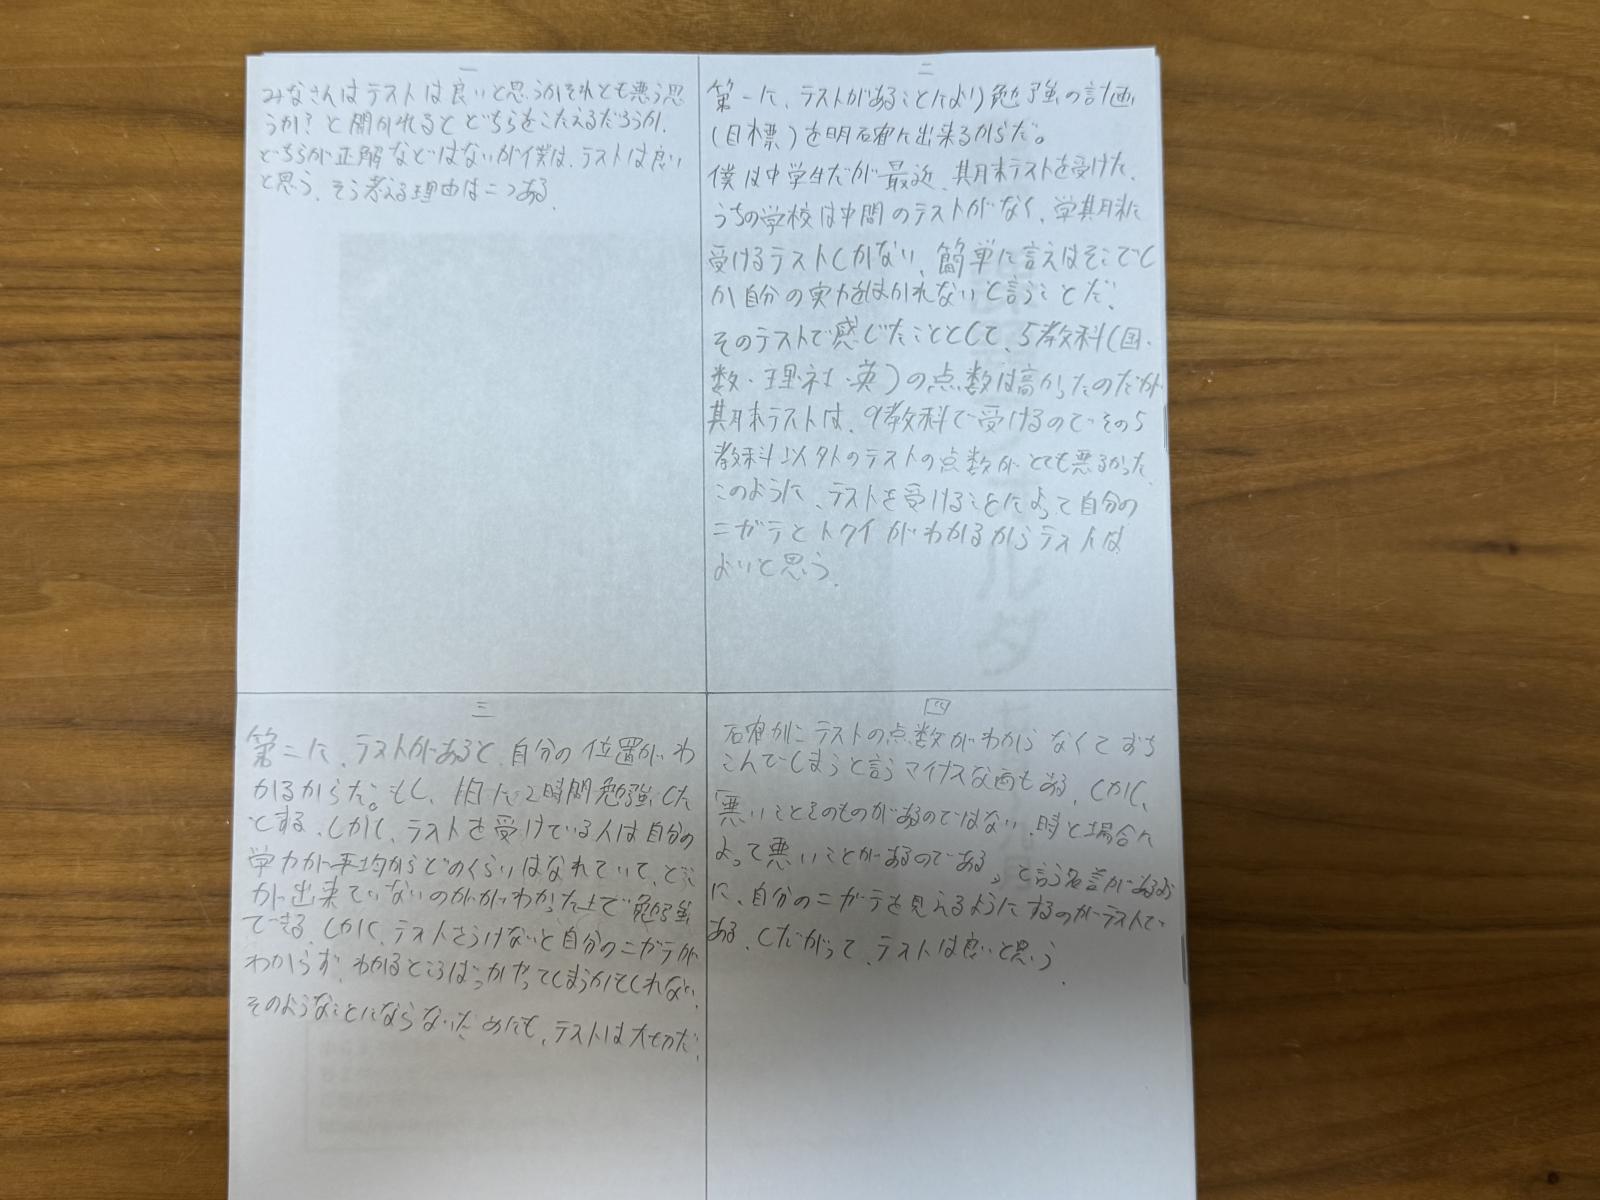 一
みなさんはテストは良いと思うかそれとも悪う思
うか?と聞かれるとどちらをこたえるだろうか。
どちらが正解などはないが僕は、テストは良い
と思う。そう考える理由は二つある。
二
第一に、テストがあることにより勉強の計画
(目標)を明確に出来るからだ。
僕は中学生だが最近、期末テストを受けた。
うちの学校は中間のテストがなく、学期末に
受けるテストしかない。簡単に言えばそこでし
か自分の実力をはかれないと言うことだ。
そのテストで感じたこととして、5教科(国・
数・理・社・英)の点数は高かったのだが
期末テストは、9教科で受けるのでその5
教科以外のテストの点数がとても悪るかった。
このように、テストを受けることによって自分の
ニガテとトクイがわかるからテストは
よいと思う。
三
第二に、テストがあると、自分の位置がわ
かるからだ。もし、 2時間勉強した
とする。しかし、テストを受けている人は自分の
学力が平均からどのくらいはなれていて、どこ
が出来ていないのかがわかった上で勉強
できる。しかし、テストをうけないと自分のニガテが
わからず、わかるところばっかやってしまうかもしれない。
そのようなことにならないためにも、テストは大切だ。
四
確かにテストの点数がわからなくておち
こんでしまうと言うマイナスな面もある。しかし、
「悪いことそのものがあるのではない。時と場合に
よって悪いことがあるのである」と言う名言があるよう
に、自分のニガテを見えるようにするのがテストで
ある。しだがって、テストは良いと思う。